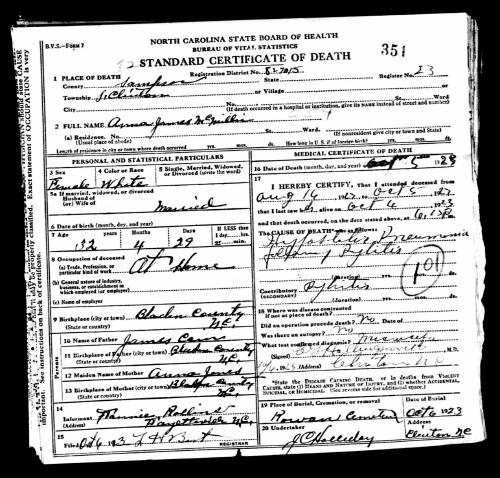 NORTH CAROLINA STATE BOARD OF HEALTH
B.V.S.—FORM 7
BUREAU OF VITAL STATISTICS
351
STANDARD CERTIFICATE OF DEATH
1 PLACE OF DEATH Registration District No. 82-7015 Register No. 23
County Sampson State
Township S. Clinton or Village
City No. St. Ward
(If death occurred in a hospital or institution, give its name instead of street and number)
2 FULL NAME Anna James McMillin
(a) Residence. No. St. Ward
(Usual place of abode) (If nonresident give city or town and State)
Length of residence in city or town where death occurred yrs. mos. ds. How long in U. S. if of foreign birth? yrs. mos. ds.
PERSONAL AND STATISTICAL PARTICULARS
3 Sex 4 Color or Race 5 Single, Married, Widowed, or Divorced (write the word)
Female White Married
5a If married, widowed, or divorced
Husband of
(or) Wife of
6 Date of birth (month, day, and year)
7 Age Years Months Days If LESS than 1 day, hrs. or min.
32 4 29
8 Occupation of deceased
(a) Trade, Profession, or particular kind of work
At Home
(b) General nature of industry, business, or establishment in which employed (or employer)
(c) Name of employer
9 Birthplace (city or town) Bladen County
(State or country) N.C.
10 Name of Father James Cain
11 Birthplace of Father (city or town) Bladen County
(State or country) N.C.
12 Maiden Name of Mother Anna Jones
13 Birthplace of Mother (city or town) Bladen County
(State or country) N.C.
14 Informant Nannie Rollins
(Address) Fayetteville N.C.
15 Filed Oct 6, 1923
REGISTRAR
MEDICAL CERTIFICATE OF DEATH
16 Date of Death (month, day, and year) Oct 5 1923
17
I HEREBY CERTIFY, That I attended deceased
from Aug 16, 1923, to Oct 5, 1923
that I last saw her alive on Oct 4, 1923
and that death occurred, on the date stated above, at
The CAUSE OF DEATH* was as follows:
Pneumonia
101
(duration) yrs. mos. ds.
Contributory Pyelitis
(SECONDARY)
(duration) yrs. mos. ds.
18 Where was disease contracted
if not at place of death?
Did an operation precede death? No Date of
Was there an autopsy? No
What test confirmed diagnosis?
(Signed) M.D.
Clinton N.C.
*State the DISEASE CAUSING DEATH, or in deaths from VIOLENT CAUSES, state (1) MEANS AND NATURE OF INJURY, and (2) whether ACCIDENTAL, SUICIDAL, or HOMICIDAL. (See reverse side for additional space.)
19 Place of Burial, Cremation, or removal Date of Burial
Rowan Cemetery Oct 6 1923
20 Undertaker Address
J C Holliday Clinton NC